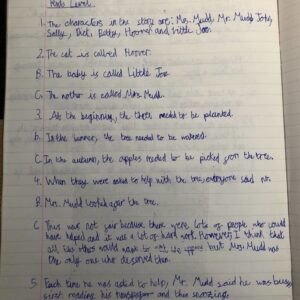 Reds Level.
1. The characters in the story are: Mrs. Mudd, Mr. Mudd, John,
Sally, Dick, Betty, Hoover and Little Joe.
2. The cat is called Hoover.
B. The baby is called Little Joe.
C. The mother is called Mrs. Mudd.
3. At the beginning, the tree needed to be planted.
b. In the summer, the tree needed to be watered.
C. In the autumn, the apples needed to be picked from the tree.
4. When they were asked to help with the tree, everyone said no.
B. Mrs. Mudd looked after the tree.
C. This was not fair because there were lots of people who could
have helped and it was a lot of hard work. However, I think that
all the others would want to eat the apples but Mrs Mudd was
the only one who deserved them.
5. Each time he was asked to help, Mr. Mudd said he was busy
first reading his newspaper and then